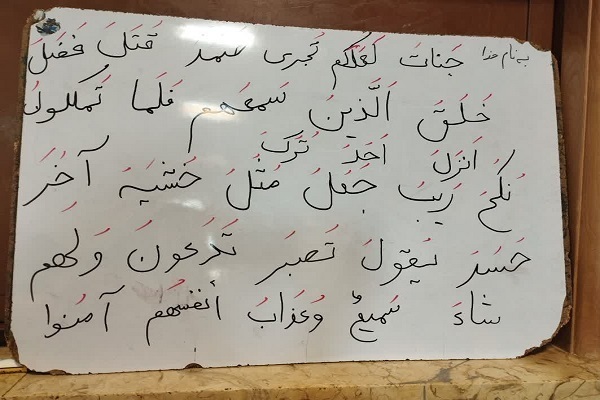 به نام خدا جَناتَ كَعَلَكُم تُجرى صَمَدَ قُتَلَ فَفَلَ
خَلَقَ اَلَّذينَ سَمعَهُم فَلَما تَمكلونَ
اَنزَلَ اَحَدَ تَرَكَ
نُكُمُ رَيبَ جَعَلَ مَثَلَ خَشيَةَ آخَرَ
حَسَدَ يَقولَ تَصبَرَ تَدعونَ وَلَهُم
شاءَ سَميعٌ وَعَذابُ أنفُسَهُم آمَنوا